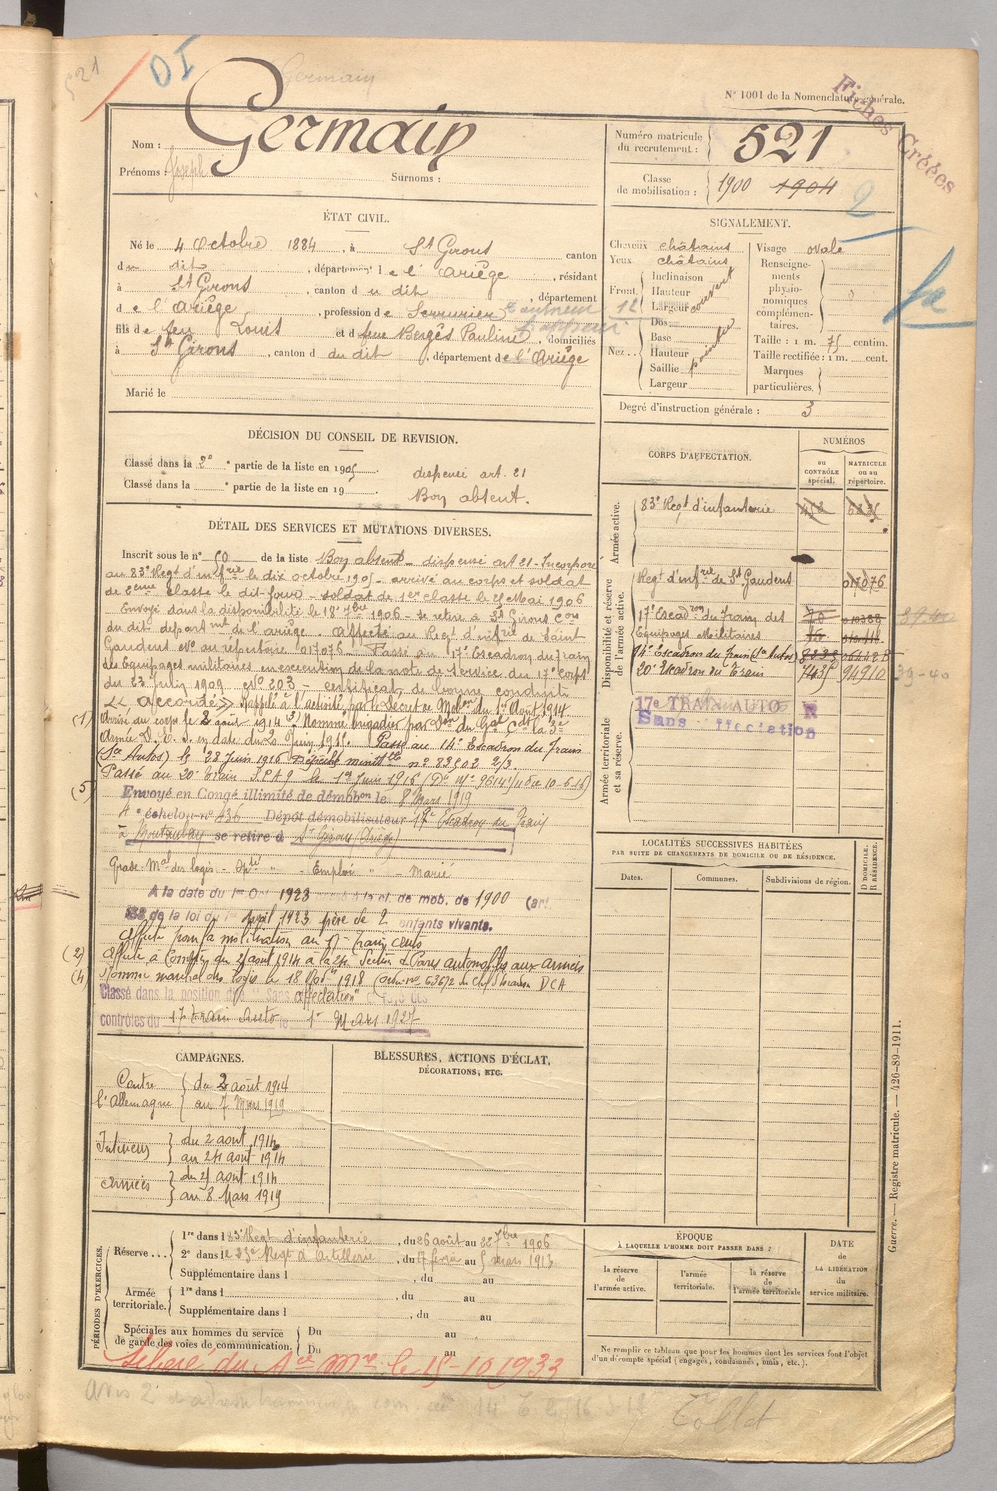 521
DI
Germain
N° 1001 de la Nomenclature générale.
Fiches Créées
Nom : Germain
Prénoms : Joseph Surnoms :
Numéro matricule du recrutement : 521
Classe de mobilisation : 1900 1904
2
ÉTAT CIVIL.
Né le 4 Octobre 1884, à St Girons canton
du dit, département de l'Ariège, résidant
à St Girons, canton du dit, département
de l'Ariège, profession de Serrurier
fils de feu Louis et de feue Bergès Pauline, domiciliés
à St Girons, canton du dit, département de l'Ariège
Marié le
SIGNALEMENT.
Cheveux châtains
Yeux châtains
Front. Inclinaison
Hauteur
Largeur
couvert
Nez.. Dos
Base
Hauteur
Saillie
Largeur
pointu
Visage ovale
Renseignements physionomiques complémentaires.
Taille : 1 m. 75 centim.
Taille rectifiée : 1 m. cent.
Marques particulières.
Degré d'instruction générale : 3
DÉCISION DU CONSEIL DE REVISION.
Classé dans la 2e partie de la liste en 1905
Classé dans la partie de la liste en 19
dispensé art. 21
Bon absent.
DÉTAIL DES SERVICES ET MUTATIONS DIVERSES.
Inscrit sous le n° 50 de la liste Bon absent dispensé art 21 - Incorporé
au 83e Regt d'infrie le dix octobre 1905 - arrivé au corps et soldat
de 2eme classe le dit jour - soldat de 1er classe le 21 Mai 1906
Envoyé dans la disponibilité le 18 7bre 1906 - se retire à St Girons Con
du dit départ mt de l'ariège. Affecté au Regt d'infrie de Saint
Gaudens n° au répertoire 017076 - Passé au 17e Escadron du Train
des Equipages militaires en execution de la note de service du 17e corps
du 23 juin 1909 n° 203 - certificat de bonne conduite
« Accordé » Rappelé à l'activité par le Décret de Mobon du 1er Aout 1914
(1) Arrivé au corps le 2 août 1914 (3) Nommé brigadier par Don du Gal Cdt la 3e
Armée D. E. S. en date du 2 Juin 1915. Passé au 14e Escadron du Train
(Sce Autos) le 28 Juin 1916 Dépêche minlle n° 82502 2/3
(5) Passé au 20e Train le 1er Juin 1916
Envoyé en Congé illimité de démobon le 8 Mars 1919
4e échelon n° 436 Dépôt démobilisateur 17e Escadron du Train
à Montauban se retire à St Girons (Ariège)
Grade : Mal des logis - Emploi " - Marié
A la date du 1er Oct 1923 à la cl. de mob. de 1900 (art.
58 de la loi du 1er Avril 1923 père de 2 enfants vivants.
Affecté pour la mobilisation au 17e train autos
(2) Affecté à Compter du 24 aout 1914 à la Section de Parcs automobiles aux armées
(4) Nommé marechal des logis le 18 1918 DCA
Classé dans la position dite "Sans affectation"
contrôles du 17e Train Auto le 1er Mars 1927
CORPS D'AFFECTATION.
NUMÉROS
AU CONTRÔLE spécial.
MATRICULE ou au répertoire.
Armée active.
83e Regt d'infanterie
Disponibilité et réserve de l'armée active.
Regt d'infrie de St Gaudens 017076
17e Escadron du Train des
Equipages Militaires
14e Escadron du Train (Sce Autos)
20e Escadron du Train 7435 94910
39-40
Armée territoriale et sa réserve.
17e TRAIN AUTO R
Sans affectation
LOCALITÉS SUCCESSIVES HABITÉES
PAR SUITE DE CHANGEMENTS DE DOMICILE OU DE RÉSIDENCE.
Dates. Communes. Subdivisions de région.
D DOMICILE. R RÉSIDENCE.
CAMPAGNES.
Contre l'Allemagne du 2 août 1914 au 7 Mars 1919
Intérieur du 2 aout 1914 au 24 aout 1914
Armées du 25 aout 1914 au 8 Mars 1919
BLESSURES, ACTIONS D'ÉCLAT,
DÉCORATIONS, ETC.
PÉRIODES D'EXERCICES.
Réserve... 1re dans le 83e Regt d'infanterie, du 26 août au 22 7bre 1906
2e dans le 23e Regt d'Artillerie, du 17 fevr. au 5 mars 1913
Supplémentaire dans l , du au
Armée territoriale. 1re dans l , du au
Supplémentaire dans l , du au
Spéciales aux hommes du service de garde des voies de communication. Du au
Du au
Libéré du Sce Mre le 15-10 1933
ÉPOQUE
À LAQUELLE L'HOMME DOIT PASSER DANS :
la réserve de l'armée active. l'armée territoriale. la réserve de l'armée territoriale
DATE de LA LIBÉRATION du service militaire.
Ne remplir ce tableau que pour les hommes dont les services font l'objet
d'un décompte spécial (engagés, condamnés, omis, etc.).
Guerre. — Registre matricule. — 426-89-1911.